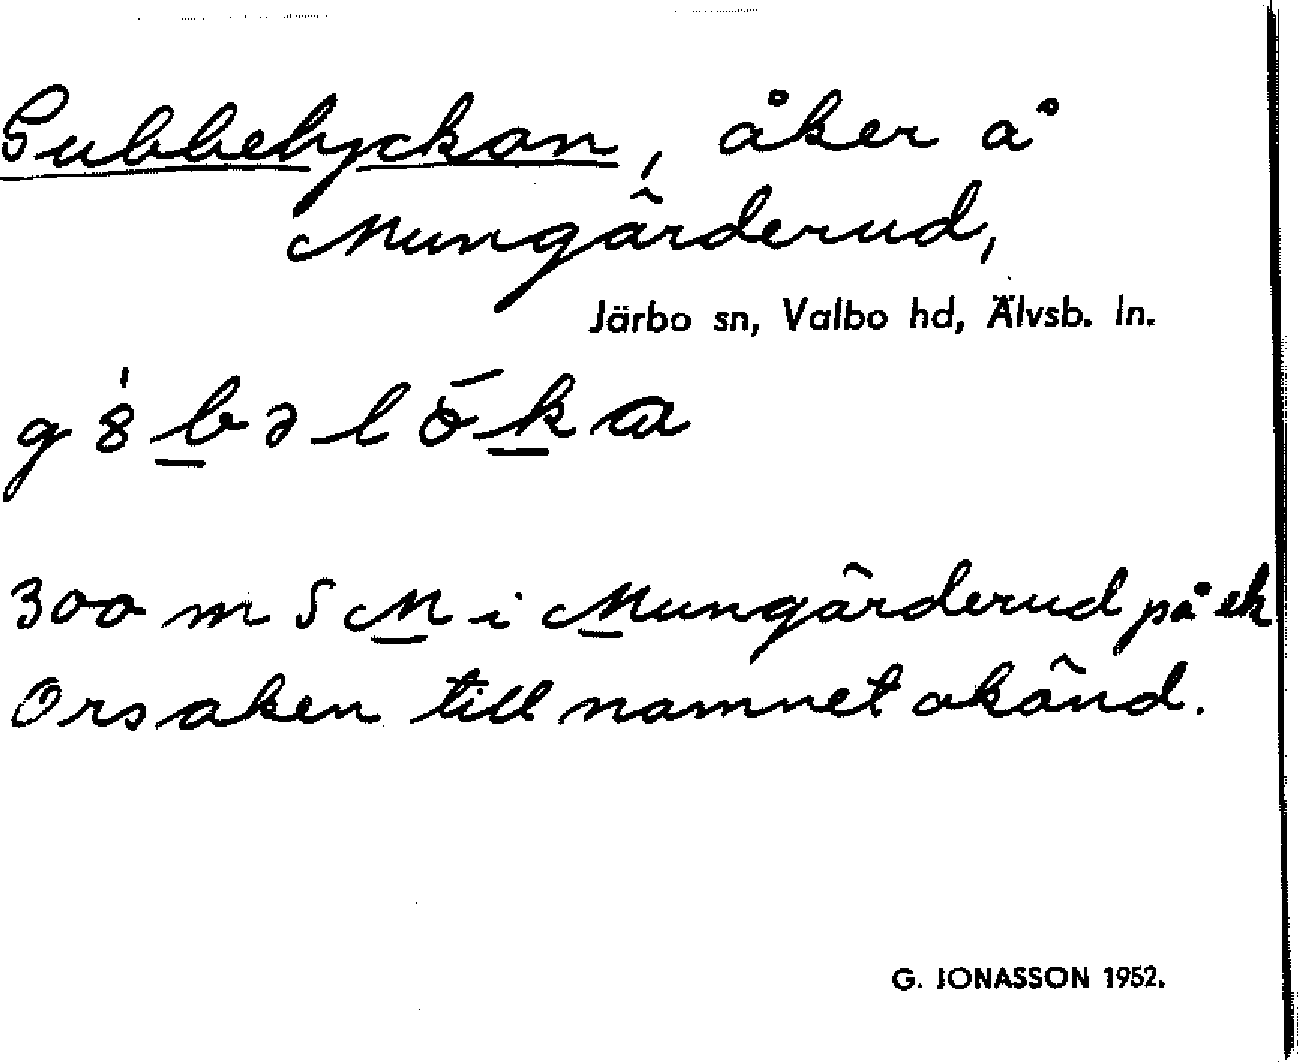 Gubbelyckan, åker å
Mungärderud,
Järbo sn, Valbo hd, Älvsb. ln.
g8́bəlö́ka
300 m S M i Mungärderud på ek
Orsaken till namnet okänd.
G. JONASSON 1952.